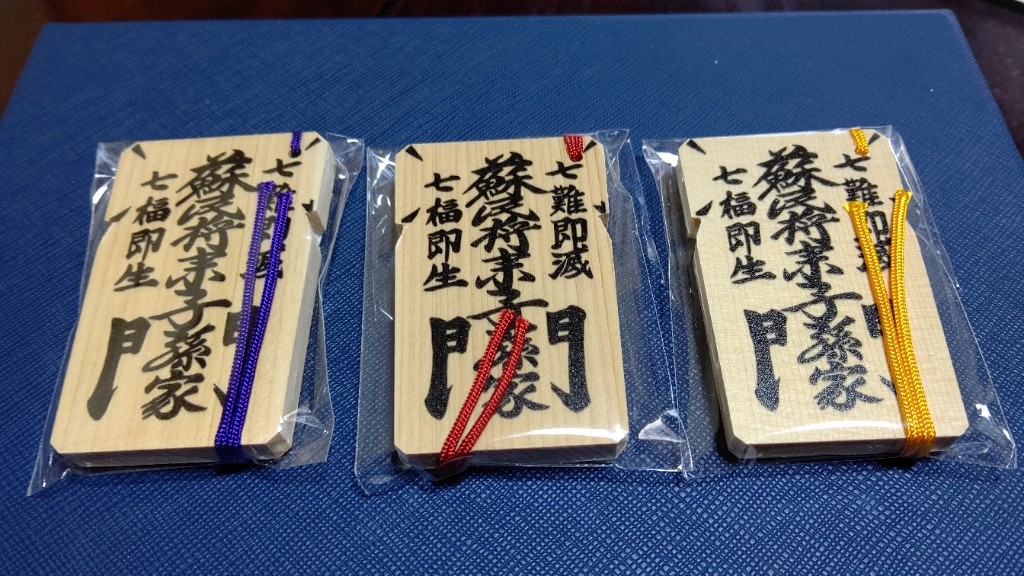 七難即滅
蘇民将来子孫家門
七福即生
七難即滅
蘇民将来子孫家門
七福即生
七難即滅
蘇民将来子孫家門
七福即生